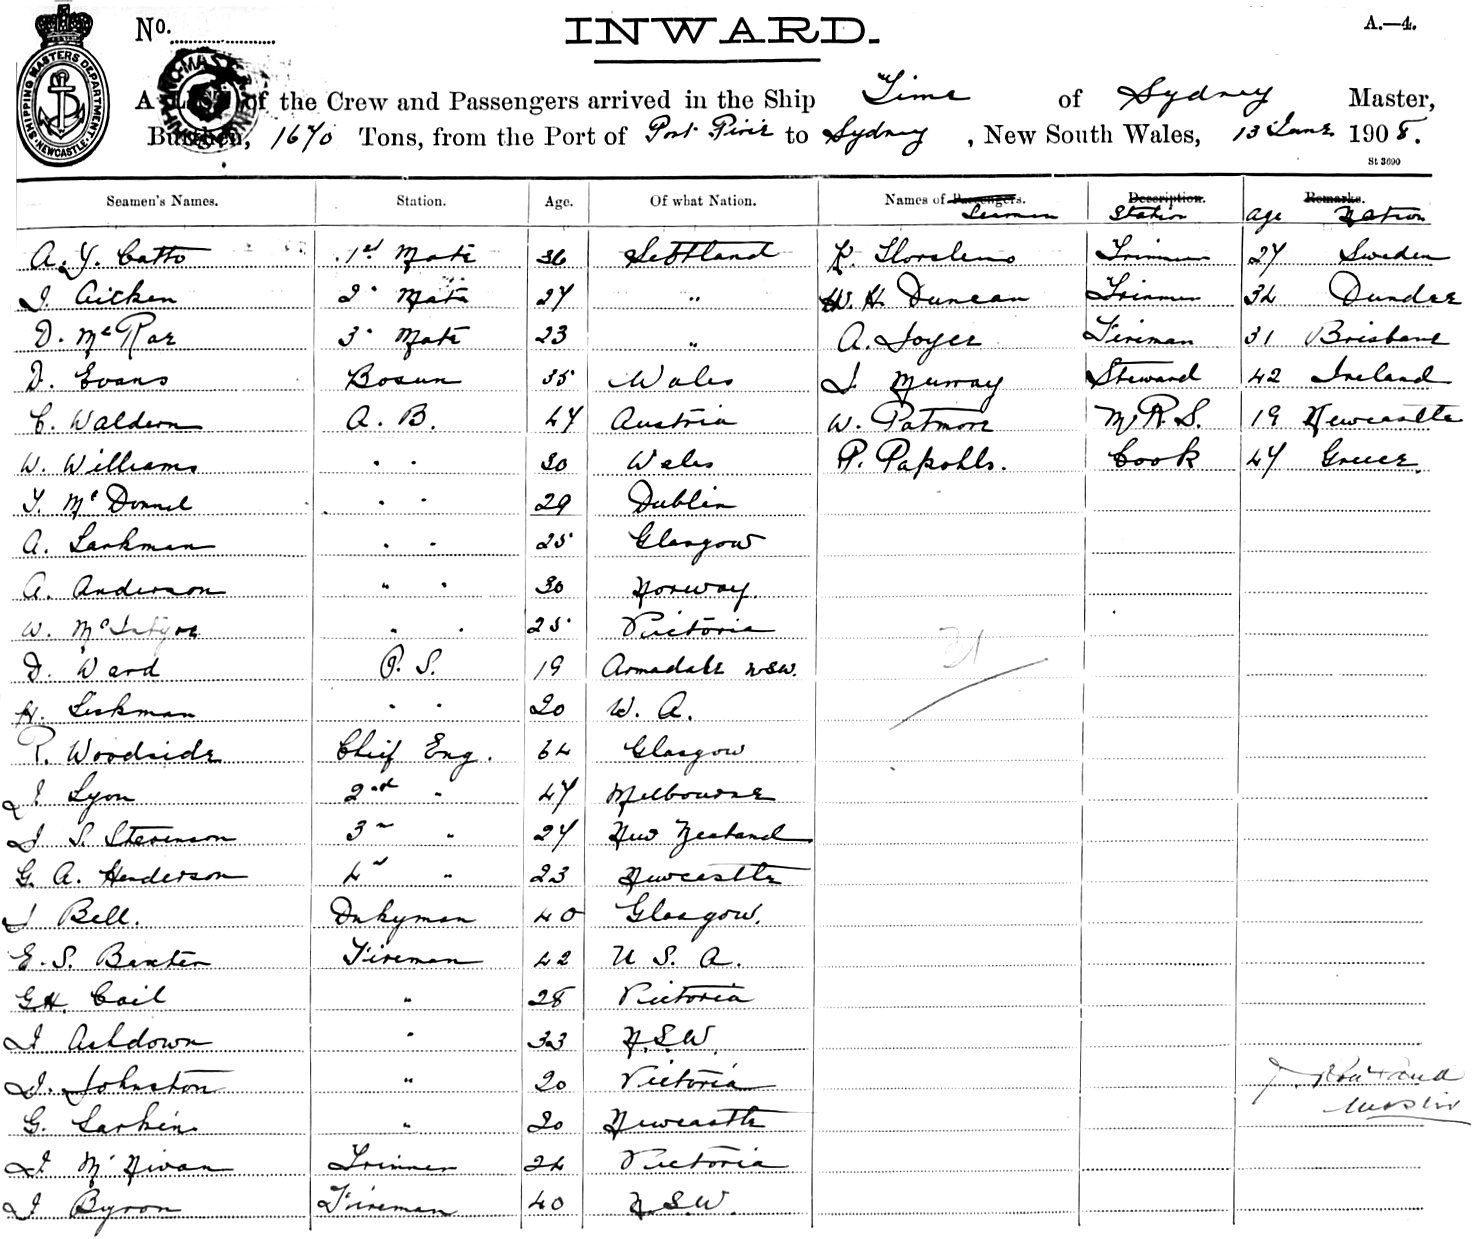 SHIPPING MASTERS DEPARTMENT NEWCASTLE
No.
INWARD.
A.—4.
A List of the Crew and Passengers arrived in the Ship Time of Sydney Master,
Burthen, 1670 Tons, from the Port of Port Pirie to Sydney, New South Wales, 13 June 1908.
St 3690
Seamen's Names. Station. Age. Of what Nation. Names of Passengers. Description. Remarks.
Seamen Station age Nation
A. Y. Catto 1st Mate 36 Scotland K. Trimmer 27 Sweden
J. Aitken 2" Mate 27 " W. H. Duncan Trimmer 34 Dundee
D. McRae 3" Mate 23 " A. Joyce Fireman 31 Brisbane
D. Evans Bosun 35 Wales J. Murray Steward 42 Ireland
C. Waldern A. B. 47 Austria W. Patmore M.R.S. 19 Newcastle
W. Williams " " 30 Wales P. Papohls. Cook 47 Greece.
T. McDonnel " " 29 Dublin
A. Larkman " " 25 Glasgow
A. Anderson " " 30 Norway.
W. McIntyre " " 25 Victoria
D. Ward O. S. 19 Armadale NSW.
H. Leckman " " 20 W. A.
31
R. Woodside Chief Eng. 64 Glasgow
J. Lyon 2nd " 47 Melbourne
J. S. Stevenson 3rd " 27 New Zealand
G. A. Henderson 4th " 23 Newcastle
J Bell. Dnkyman 40 Glasgow.
E. S. Baxter Fireman 42 U. S. A.
G.H. Cail " 28 Victoria
J Ashdown " 33 N.S.W.
J. Johnston " 20 Victoria
G. Larkin " 20 Newcastle
J. McNivan Trimmer 24 Victoria
J Byron Fireman 40 N.S.W.
J. Rowland
Master